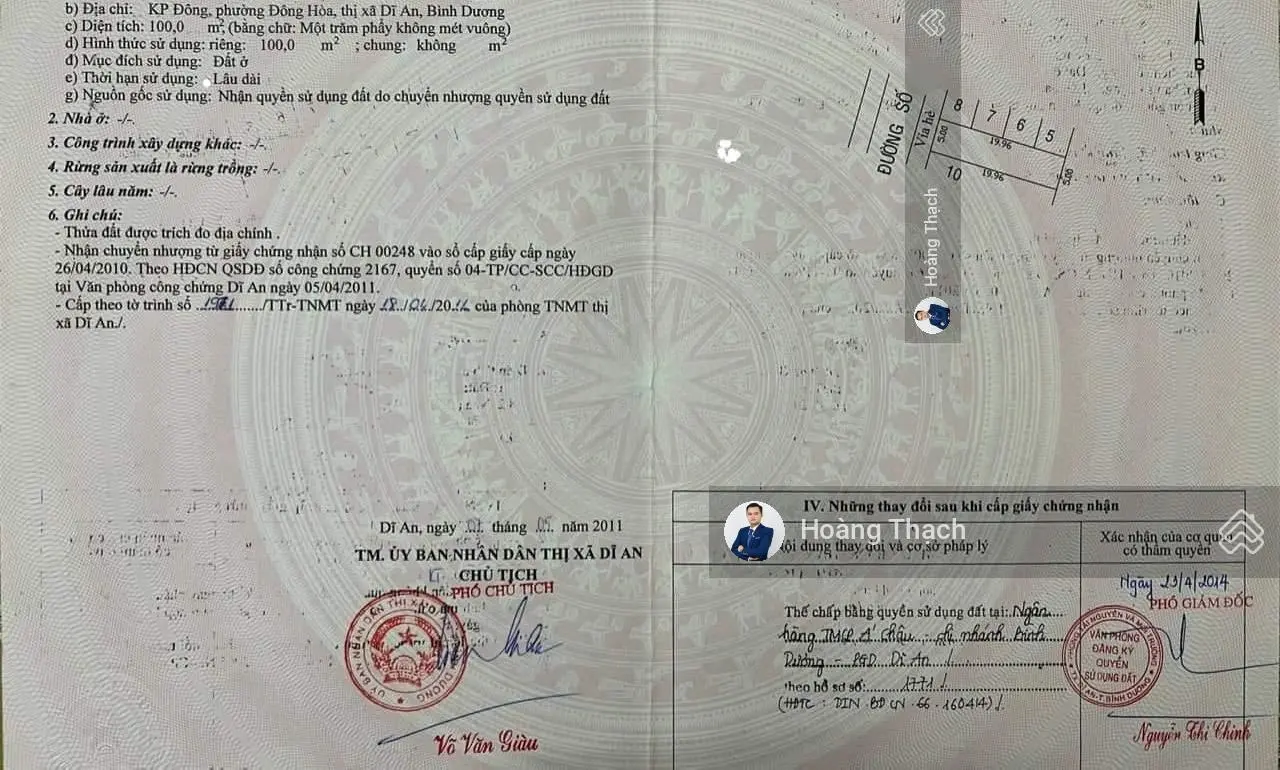 b) Địa chỉ: KP Đông, phường Đông Hòa, thị xã Dĩ An, Bình Dương
c) Diện tích: 100,0 m², (bằng chữ: Một trăm phẩy không mét vuông)
d) Hình thức sử dụng: riêng: 100,0 m² ; chung: không m²
đ) Mục đích sử dụng: Đất ở
e) Thời hạn sử dụng: Lâu dài
g) Nguồn gốc sử dụng: Nhận quyền sử dụng đất do chuyển nhượng quyền sử dụng đất
2. Nhà ở: -/-.
3. Công trình xây dựng khác: -/-.
4. Rừng sản xuất là rừng trồng: -/-.
5. Cây lâu năm: -/-.
6. Ghi chú:
- Thửa đất được trích đo địa chính .
- Nhận chuyển nhượng từ giấy chứng nhận số CH 00248 vào sổ cấp giấy cấp ngày
26/04/2010. Theo HĐCN QSDĐ số công chứng 2167, quyển số 04-TP/CC-SCC/HĐGD
tại Văn phòng công chứng Dĩ An ngày 05/04/2011.
- Cấp theo tờ trình số /TTr-TNMT ngày của phòng TNMT thị
xã Dĩ An./.
B
ĐƯỜNG SỐ
Vỉa hè
8
7
6
5
5.00
19.96
10
19.96
5.00
Hoàng Thạch
Dĩ An, ngày tháng năm 2011
TM. ỦY BAN NHÂN DÂN THỊ XÃ DĨ AN
CHỦ TỊCH
PHÓ CHỦ TỊCH
Võ Văn Giàu
IV. Những thay đổi sau khi cấp giấy chứng nhận
Hoàng Thạch
Nội dung thay đổi và cơ sở pháp lý
Xác nhận của cơ quan
có thẩm quyền
Ngày 23/4/2014
PHÓ GIÁM ĐỐC
Thế chấp bằng quyền sử dụng đất tại: Ngân
hàng TMCP Á Châu - chi nhánh Bình
Dương - PGD Dĩ An /
theo hồ sơ số: 1771/
(HĐTC : DIN.BĐCN.66.160414)/.
VĂN PHÒNG
ĐĂNG KÝ
QUYỀN
SỬ DỤNG ĐẤT
Nguyễn Thị Chinh